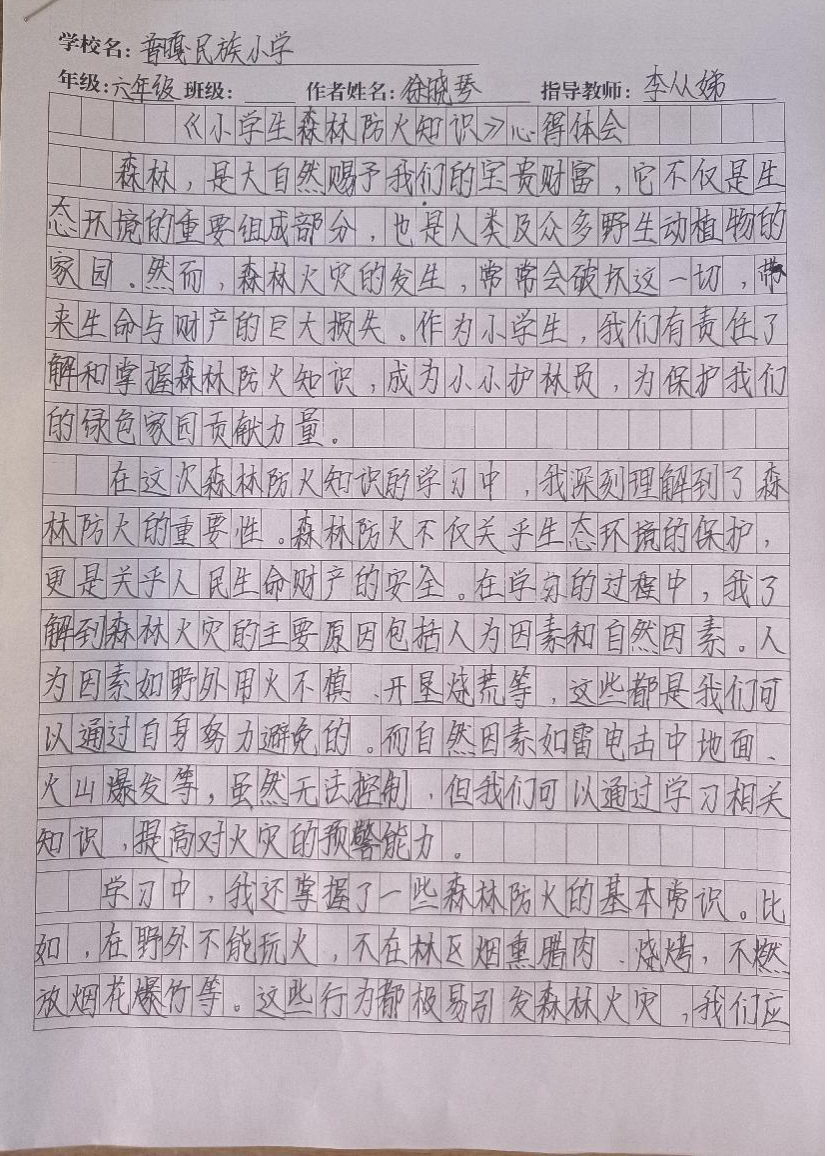 学校名：普嘎民族小学
年级：六年级 班级： 作者姓名：徐晓琴 指导教师：李从娣
《小学生森林防火知识》心得体会
森林，是大自然赐予我们的宝贵财富，它不仅是生
态环境的重要组成部分，也是人类及众多野生动植物的
家园。然而，森林火灾的发生，常常会破坏这一切，带
来生命与财产的巨大损失。作为小学生，我们有责任了
解和掌握森林防火知识，成为小小护林员，为保护我们
的绿色家园贡献力量。
在这次森林防火知识的学习中，我深刻理解到了森
林防火的重要性。森林防火不仅关乎生态环境的保护，
更是关乎人民生命财产的安全。在学习的过程中，我了
解到森林火灾的主要原因包括人为因素和自然因素。人
为因素如野外用火不慎、开垦烧荒等，这些都是我们可
以通过自身努力避免的。而自然因素如雷电击中地面、
火山爆发等，虽然无法控制，但我们可以通过学习相关
知识，提高对火灾的预警能力。
学习中，我还掌握了一些森林防火的基本常识。比
如，在野外不能玩火，不在林区烟熏腊肉、烧烤，不燃
放烟花爆竹等。这些行为都极易引发森林火灾，我们应